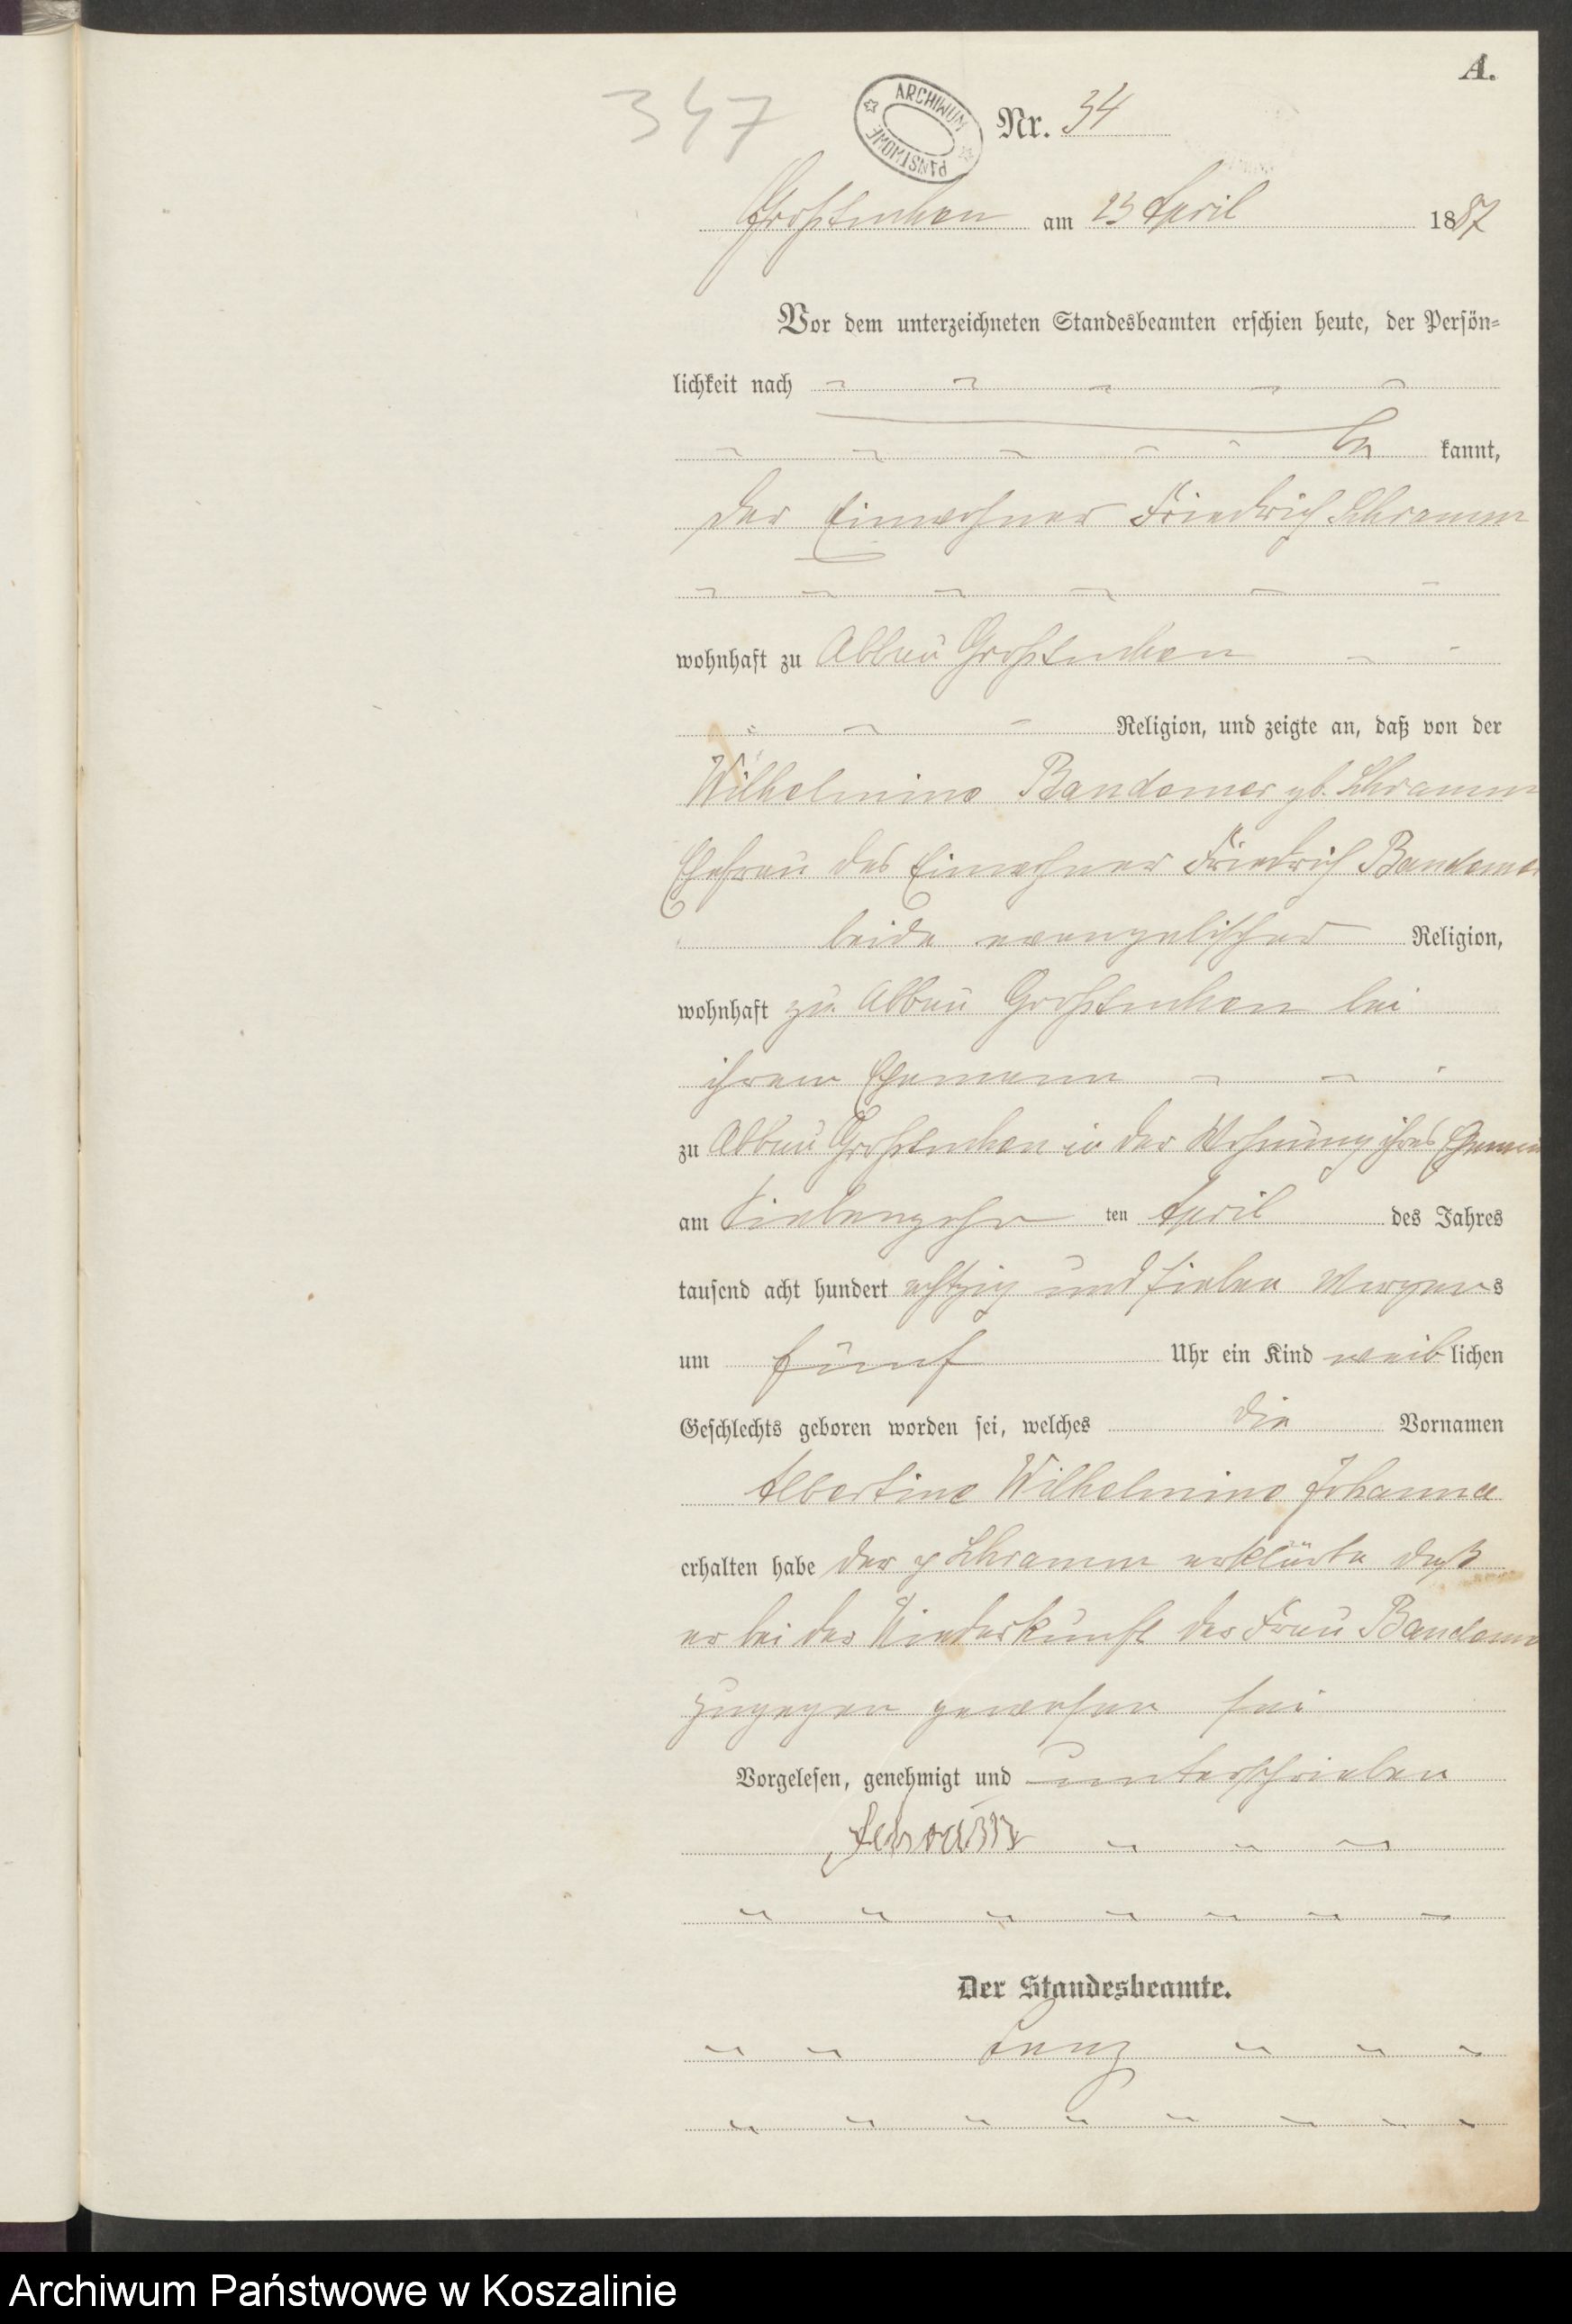 A.
347
ARCHIWUM PAŃSTWOWE
Nr. 34
Großtuchen am 23 April 1887
Vor dem unterzeichneten Standesbeamten erschien heute, der Persön-
lichkeit nach
be kannt,
der Einwohner Friedrich Schramm
wohnhaft zu Abbau Großtuchen
Religion, und zeigte an, daß von der
Wilhelmine Bandomer geb. Schramm
Ehefrau des Einwohner Friedrich Bandomer
beide evangelischer Religion,
wohnhaft zu Abbau Großtuchen bei
ihrem Ehemann
zu Abbau Großtuchen in der Wohnung ihres Ehemann
am siebenzehn ten April des Jahres
tausend acht hundert achtzig und sieben Morgens
um fünf Uhr ein Kind weiblichen
Geschlechts geboren worden sei, welches die Vornamen
Albertine Wilhelmine Johanna
erhalten habe der p Schramm erklärte daß
er bei der Niederkunft der Frau Bandomer
zugegen gewesen sei
Vorgelesen, genehmigt und unterschrieben
Schramm
Der Standesbeamte.
Archiwum Państwowe w Koszalinie